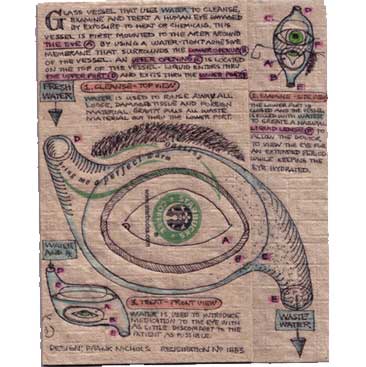 GLASS VESSEL THAT USES WATER TO CLEANSE,
EXAMINE AND TREAT A HUMAN EYE DAMAGED
BY EXPOSURE TO HEAT OR CHEMICALS. THIS
VESSEL IS FIRST MOUNTED TO THE AREA AROUND
THE EYE A BY USING A WATER-TIGHT ADHESIVE
MEMBRANE THAT SURROUNDS THE LOWER OPENING B
OF THE VESSEL. AN UPPER OPENING C IS LOCATED
ON THE TOP OF THE VESSEL. LIQUID ENTERS THRU
THE UPPER PORT D AND EXITS THRU THE LOWER PORT E
1. CLEANSE - TOP VIEW
FRESH
WATER
WATER IS USED TO RINSE AWAY ALL
LOOSE, DAMAGED TISSUE AND FOREIGN
MATERIAL. GRAVITY PULLS ALL WASTE
MATERIAL OUT THRU THE LOWER PORT.
2. EXAMINE - SIDE VIEW
THE LOWER PORT IS
CLOSED AND THE VESSEL
IS FILLED WITH WATER
TO CREATE A NATURAL
LIQUID LENSE F TO
ALLOW THE DOCTOR
TO VIEW THE EYE FOR
AN EXTENDED PERIOD
WHILE KEEPING THE
EYE HYDRATED.
perfect
STARBUCKS
COFFEE
WATER
3. TREAT - FRONT VIEW
WATER IS USED TO INTRODUCE
MEDICATION TO THE EYE WITH
AS LITTLE DISCOMFORT TO THE
PATIENT AS POSSIBLE.
WASTE
WATER
DESIGN: FRANK NICHOLS REGISTRATION Nº 1883